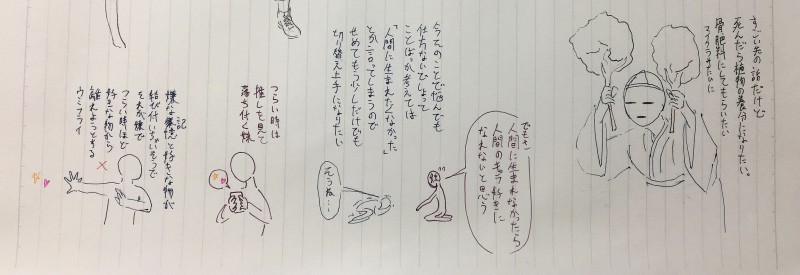 すごい先の話だけど
死んだら植物の養分になりたい。
骨肥料にしてもらいたい
マイクラみたいに
でもさ、
人間に生まれなかったら
人間のキャラ好きに
なれないと思う
そうね…
今そのことで悩んでも
仕方ないでしょって
ことばっか考えては
「人間に生まれたくなかった」
とか言ってしまうので
せめてもう少しだけでも
切り替え上手になりたい
つらい時は
推しを見て
落ち付く様
嫌な記憶と好きな物が
結び付いちゃいそうで
それが嫌で
つらい時ほど
好きな物から
離れようとする
ウミフライ